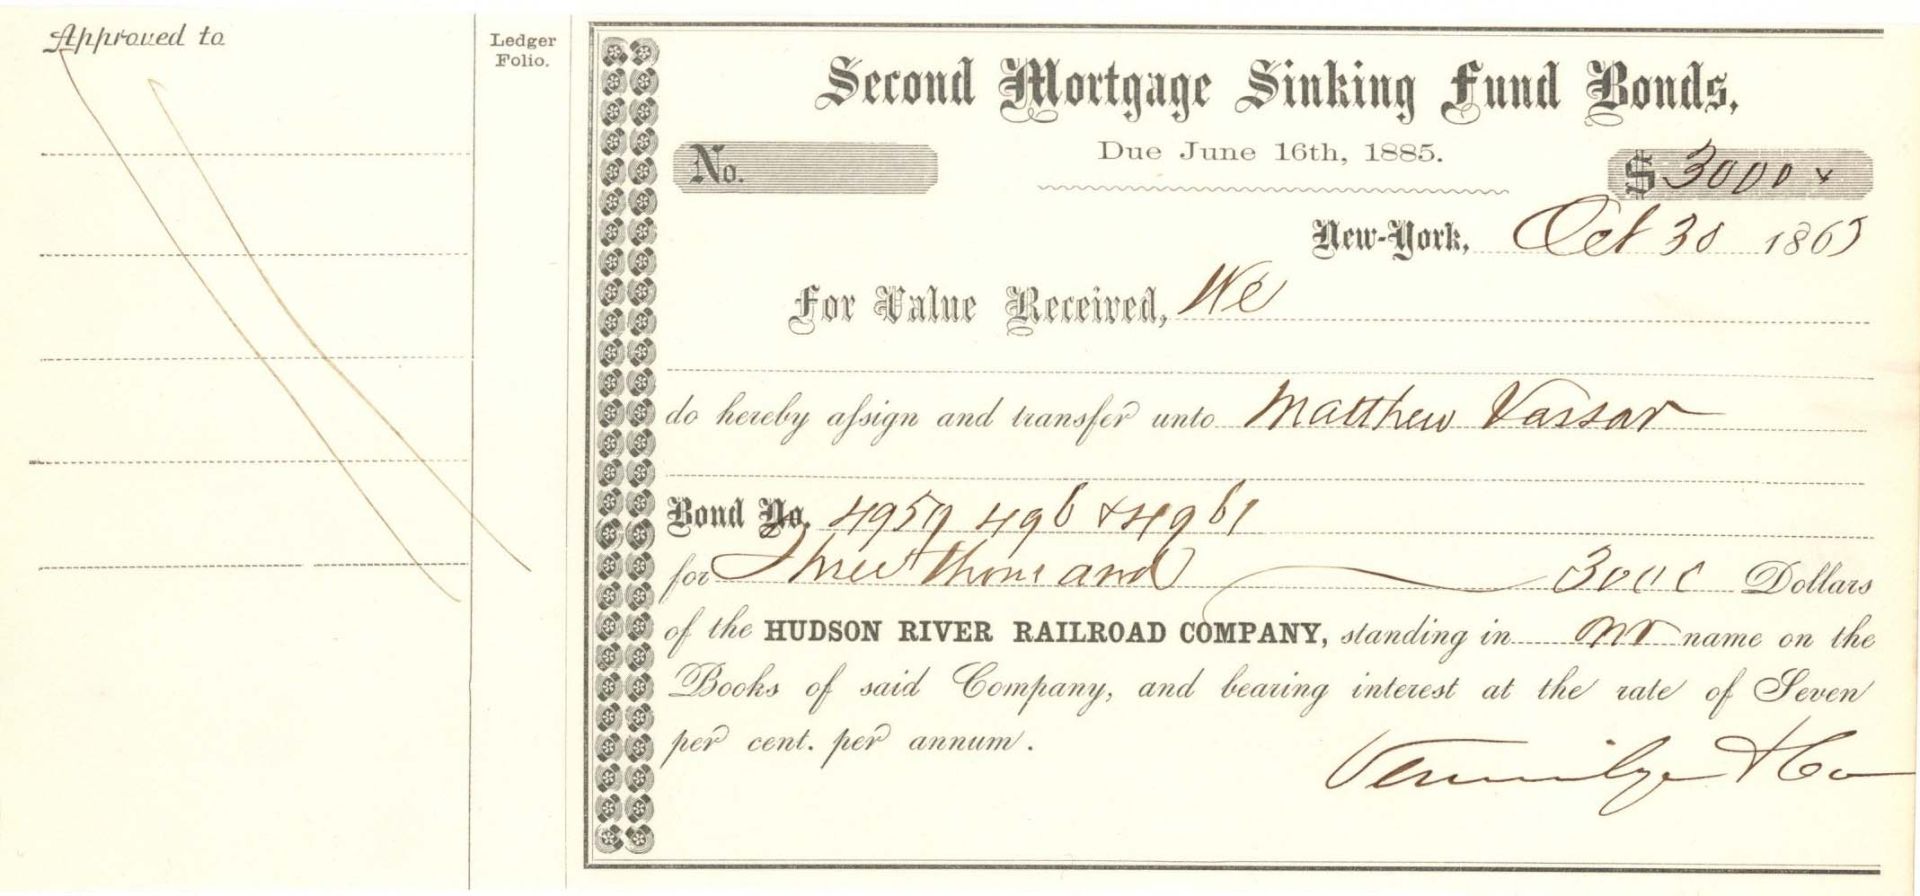 Approved to
Ledger
Folio.
Second Mortgage Sinking Fund Bonds,
Due June 16th, 1885.
No.
$ 3000 x
New-York, Oct 30 1865
For Value Received, We
do hereby assign and transfer unto Matthew Vassar
Bond No. 4959 496 & 4961
for Three thousand 3000 Dollars
of the HUDSON RIVER RAILROAD COMPANY, standing in our name on the
Books of said Company, and bearing interest at the rate of Seven
per cent. per annum.
Vermilye & Co